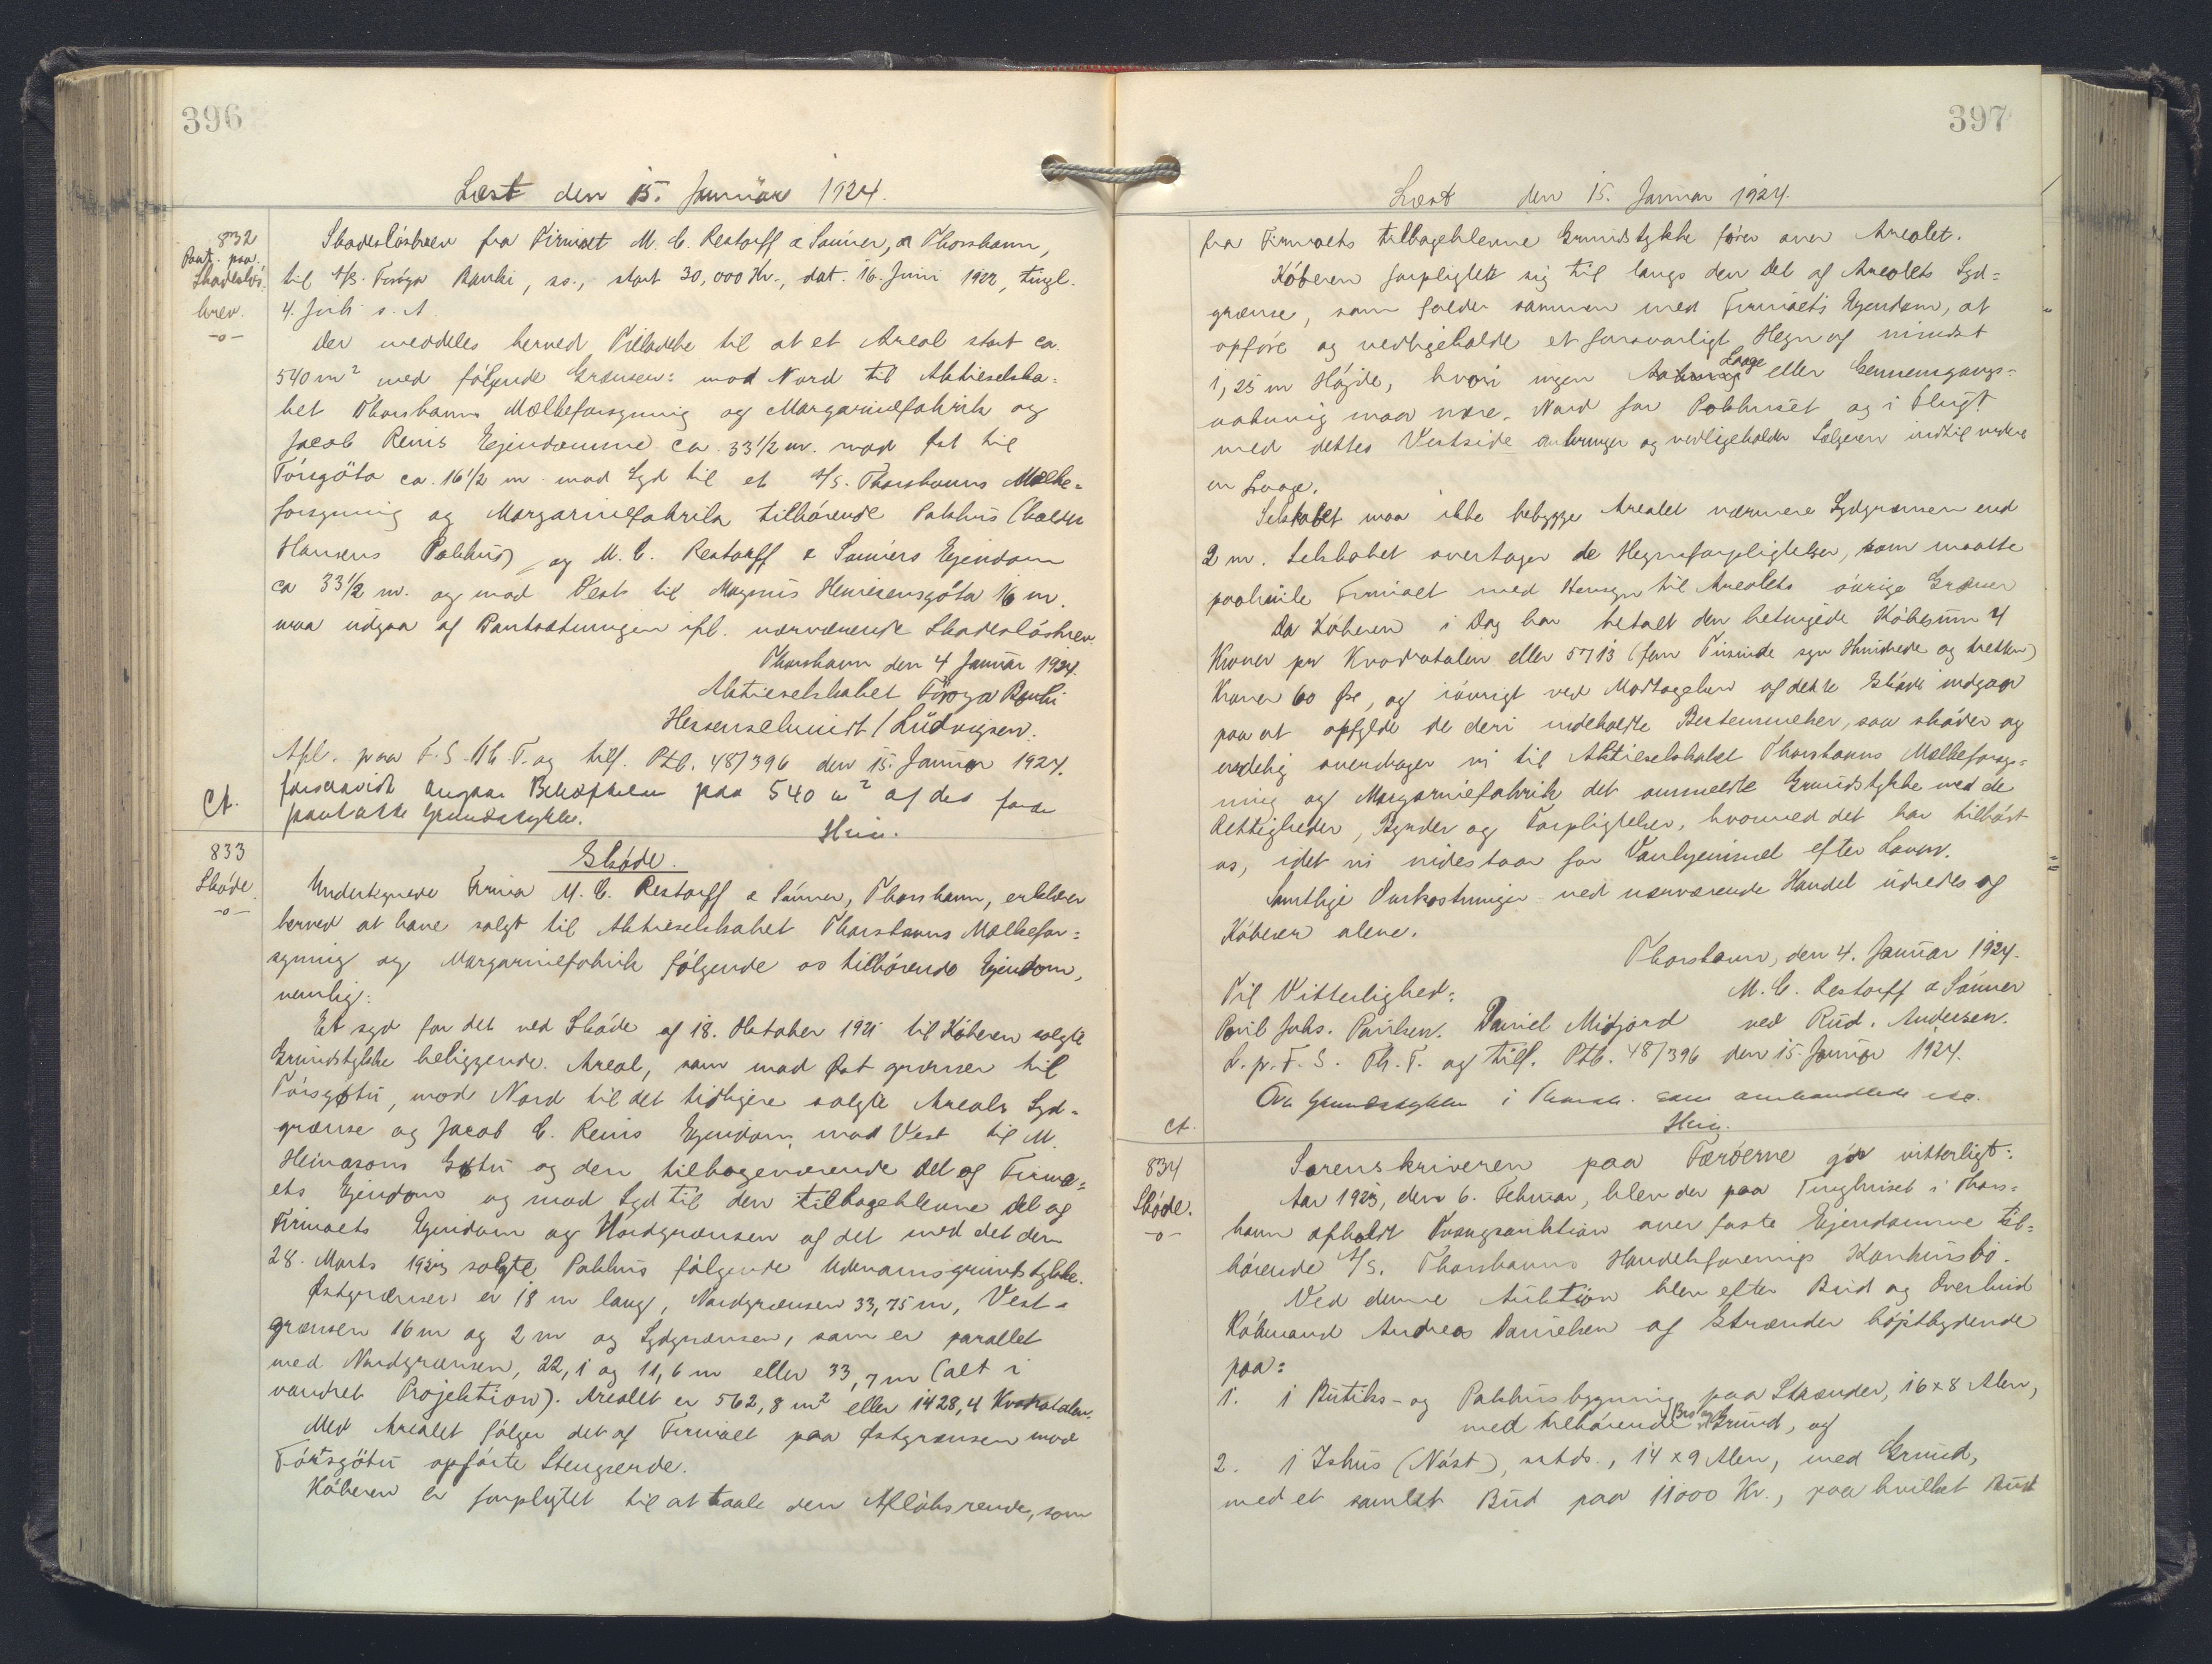 396
Læst den 15. Januar 1924.
832
Paat. paa
Skadesløs-
brev.
-o-
Skadesløsbrev fra Firmaet M. C. Restorff & Sønner, a Thorshavn,
til A/S. Føroya Banki, ss., stort 30,000 Kr., dat. 16. Juni 1922, tingl.
4. Juli s. A.
Der meddeles herved Tilladelse til at et Areal stort ca.
540 m² med følgende Grænser: mod Nord til Aktieselska-
bet Thorshavns Mælkeforsyning og Margarinefabrik og
Jacob Reins Ejendomme ca. 33½ m. mod Øst til
Tórsgöta ca. 16½ m. mod Syd til et A/S. Thorshavns Mælke-
forsyning og Margarinefabrik tilhørende Pakhus (kaldet
Hansens Pakhus) og M. C. Restorff & Sønners Ejendom
ca 33½ m. og mod Vest til Magnus Heinesensgöta 16 m.
maa udgaa af Pantsætningen ifl. nærværende Skadesløsbrev.
Thorshavn den 4 Januar 1924.
Aktieselskabet Föroya Banki
Hessenschmidt / Ludvigsen.
Afl. paa F. S. Th. T. og tilf. Ptb. 48/396 den 15. Januar 1924.
forsaavidt angaar Relaxation paa 540 m² af det
pantsatte Grundstykke.
Ct.
833
Skøde.
-o-
Skøde.
Undertegnede Firma M. C. Restorff & Sønner, Thorshavn, erklærer
herved at have solgt til Aktieselskabet Thorshavns Mælkefor-
syning og Margarinefabrik følgende os tilhørende Ejendom,
nemlig:
Et syd for det ved Skøde af 18. Oktober 1921 til Køberen solgte
Grundstykke beliggende Areal, som mod Øst grænser til
Tórsgøtu, mod Nord til det tidligere solgte Areals Syd-
grænse og Jacob C. Reins Ejendom, mod Vest til M.
Heinasons Gøtu og den tilbageværende Del af Firma-
ets Ejendom og mod Syd til den tilbageblevne Del af
Firmaets Ejendom og Nordgrænsen af det med det den
28. Marts 1923 solgte Pakhus følgende Udenomsgrundstykke.
Østgrænsen er 18 m lang, Nordgrænsen 33,75 m, Vest-
grænsen 16 m og 2 m og Sydgrænsen, som er parallet
med Nordgrænsen, 22,1 og 11,6 m eller 33,7 m (alt i
vandret Projektion). Arealet er 562,8 m² eller 1428,4 Kvadratalen.
Med Arealet følger det af Firmaet paa Østgrænsen mod
Tórsgötu opførte Stengærde.
Køberen er forpligtet til at taale den Afløbsrende, som
397
Læst den 15. Januar 1924.
fra Firmaets tilbageblevne Grundstykke fører over Arealet.
Køberen forpligter sig til langs den Del af Arealets Syd-
grænse, som falder sammen med Firmaets Ejendom, at
opføre og vedligeholde et forsvarligt Hegn af mindst
1,25 m Højde, hvori ingen Laage eller Gennemgangs-
aabning maa være. Nord for Pakhuset og i Flugt
med dettes Vestside anbringer og vedligeholder Sælgeren indtil videre
en Laage.
Selskabet maa ikke bebygge Arealet nærmere Sydgrænsen end
2 m. Selskabet overtager de Hegnsforpligtelser, som maatte
paahvile Firmaet med Hensyn til Arealets øvrige Grænser
Da Køberen i Dag har betalt den betingede Købesum 4
Kroner pr Kvadratalen eller 5713 (fem Tusinde syv Hundrede og tretten)
Kroner 60 Øre, og iøvrigt ved Modtagelsen af dette Skøde indgaar
paa at opfylde de deri indeholdte Bestemmelser, saa skøder og
endelig overdrager vi til Aktieselskabet Thorshavns Mælkeforsy-
ning og Margarinefabrik det ommeldte Grundstykke med de
Rettigheder, Byrder og Forpligtelser, hvormed det har tilhørt
os, idet vi indestaar for Vanhjemmel efter Loven.
Samtlige Omkostninger ved nærværende Handel udredes af
Køberen alene.
Thorshavn, den 4. Januar 1924.
Til Vitterlighed:
M. C. Restorff & Sønner
Poul Johs. Paulsen. Daniel Midjord ved Rud. Andersen.
L. p. F. S. Th. T. og tilf. Ptb. 48/396 den 15. Januar 1924.
Grundstykke i Thorsh. som omhandlede
ct.
834
Skøde.
-o-
Sorenskriveren paa Færøerne gør vitterligt:
Aar 1923, den 6. Februar, blev der paa Tinghuset i Thors-
havn afholdt Tvangsauktion over faste Ejendomme til-
hørende A/S. Thorshavns Handelsforenings Konkursbo.
Ved denne Auktion blev efter Bud og Overbud
Købmand Andreas Danielsen af Strænder højstbydende
paa:
1. 1 Butiks- og Pakhusbygning paa Strænder, 16 x 8 Alen,
med tilhørende Grund, og
2. 1 Ishus (Nóst), smtds., 14 x 9 Alen, med Grund,
med et samlet Bud paa 11000 Kr., paa hvilket Bud